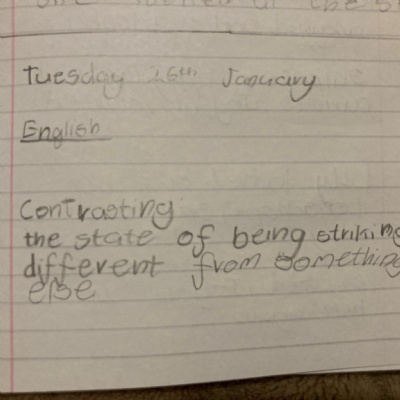 the s
Tuesday 26th January
English
Contrasting:
the state of being striking
different from something
else